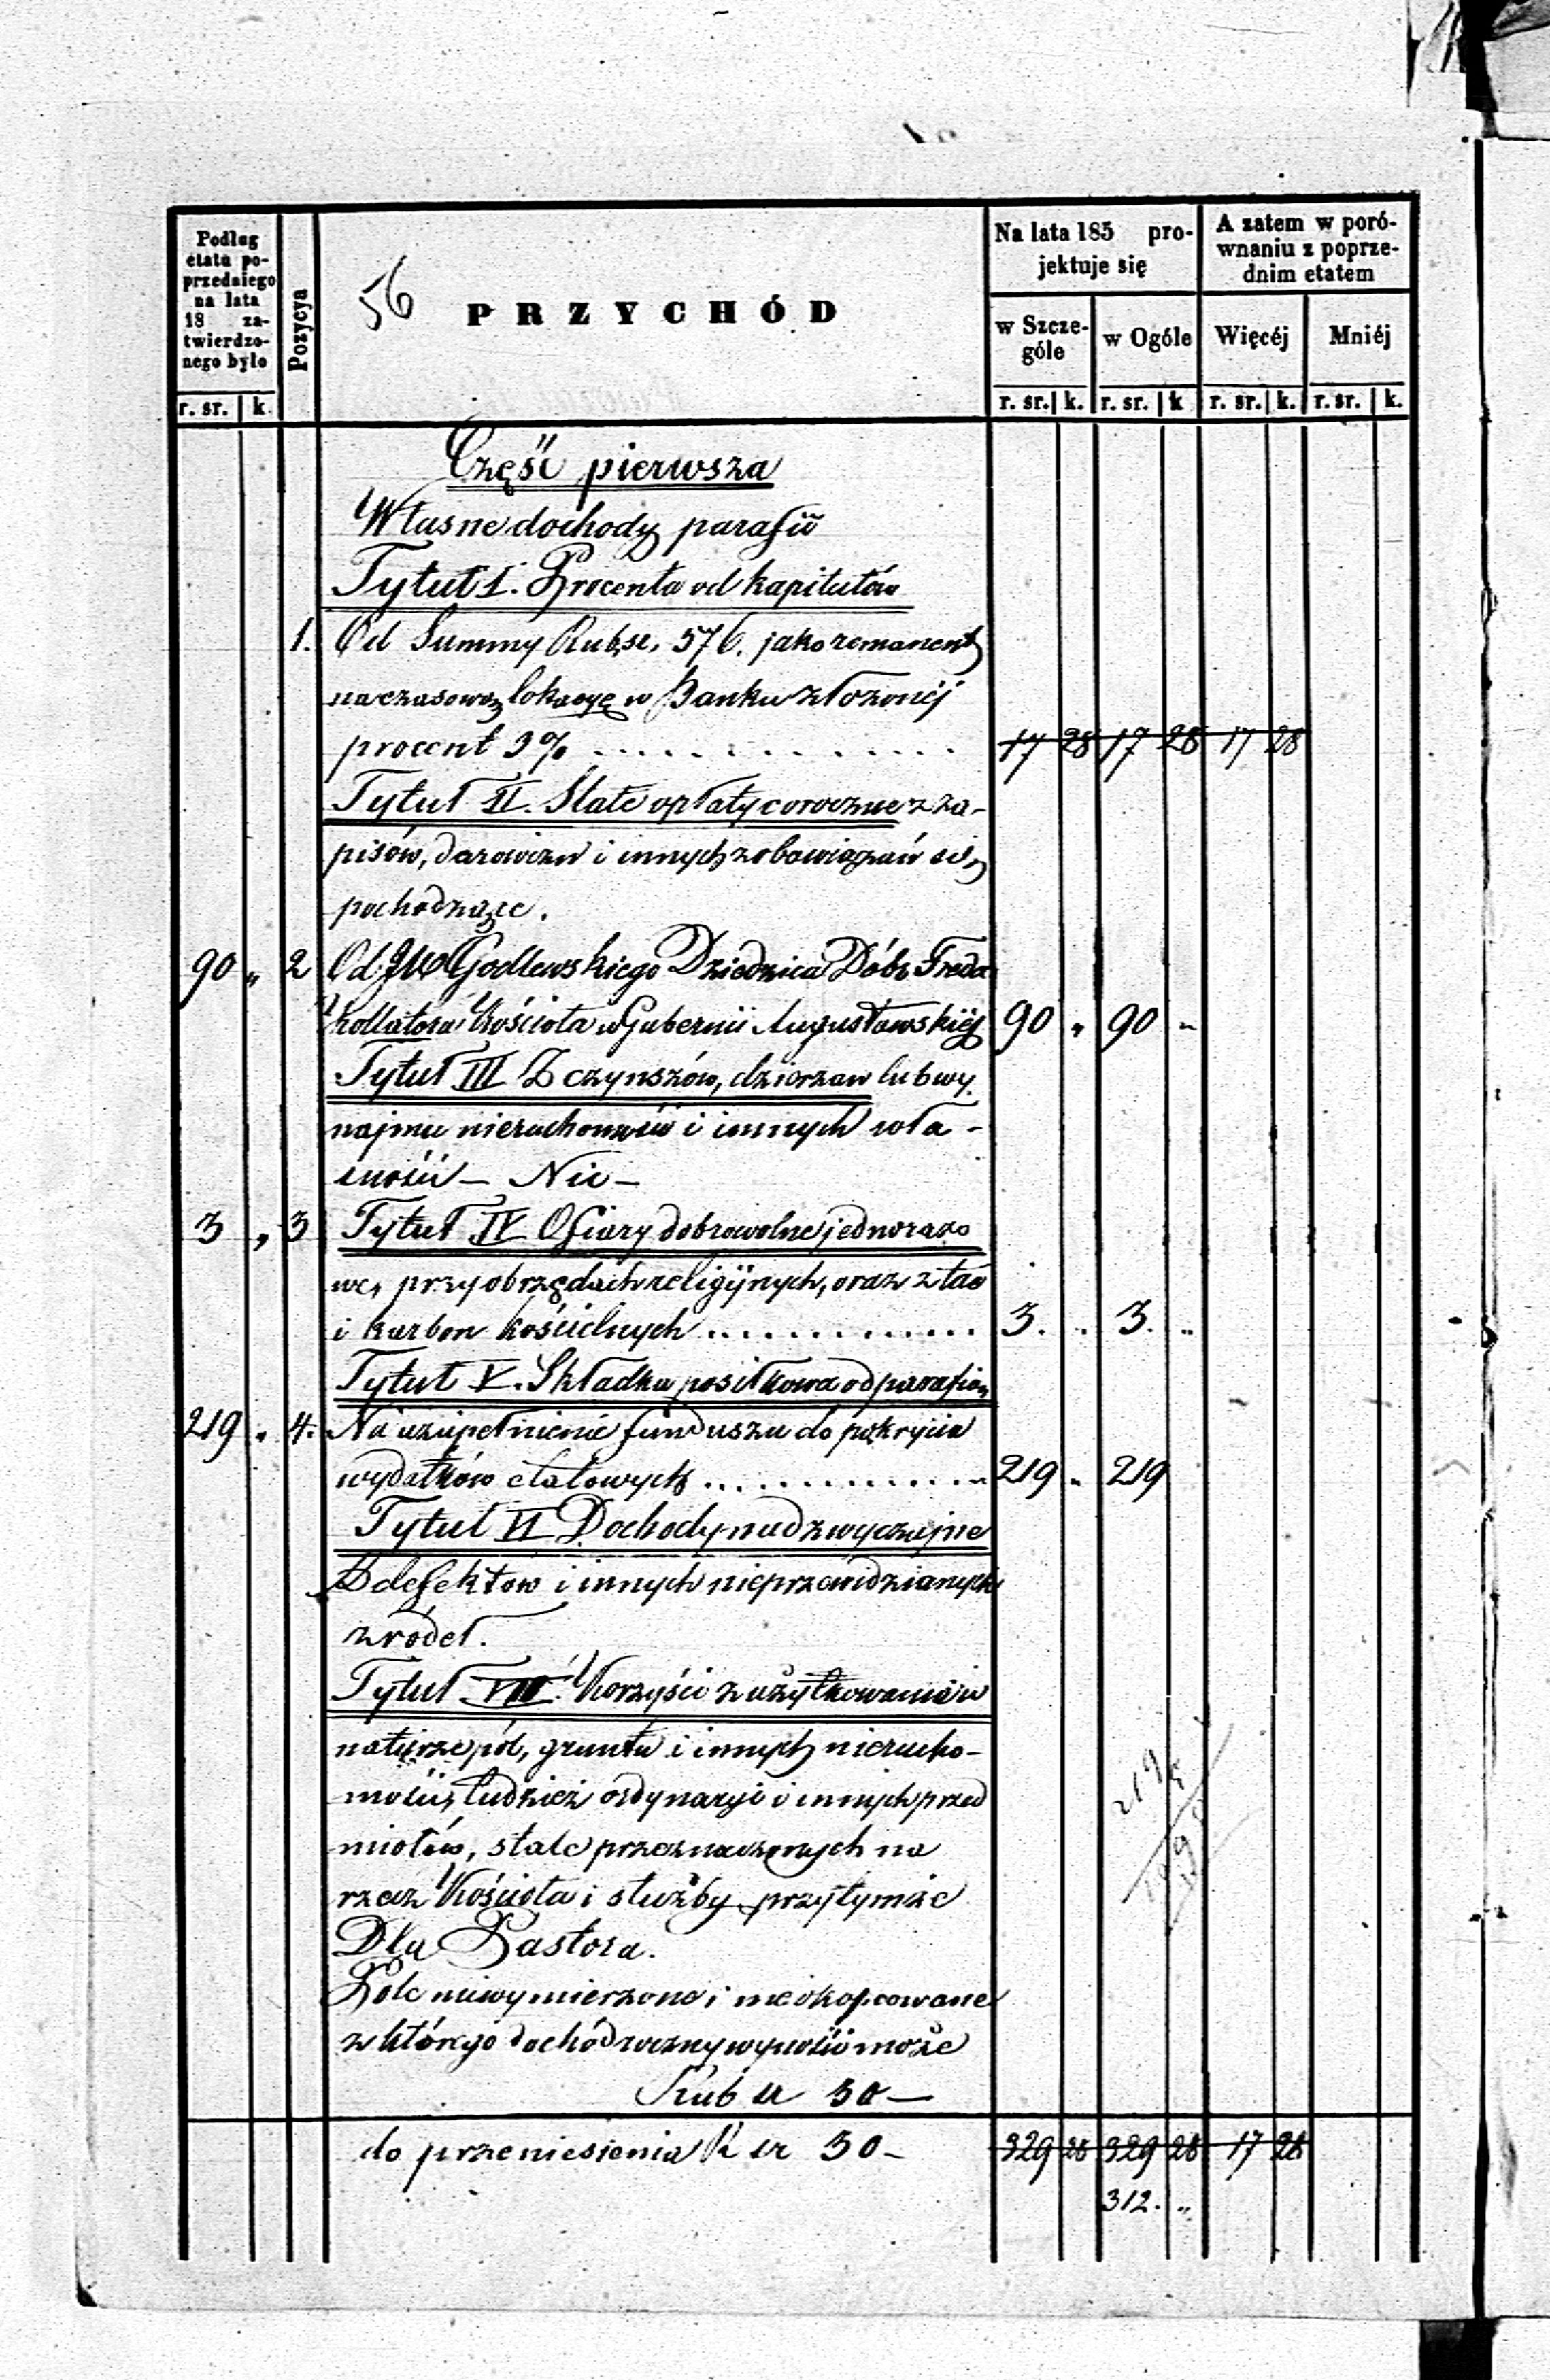 Podług
etatu po-
przedniego
na lata
18 za-
twierdzo-
nego było
r. sr. k.
Pozycya
56
PRZYCHÓD
Na lata 185 pro-
jektuje się
w Szcze-
góle
w Ogóle
r. sr. k. r. sr. k
A zatem w poró-
wnaniu z poprze-
dnim etatem
Więcéj Mniéj
r. sr. k. r. sr. k.
Część pierwsza
Własne dochody parafii
Tytuł I. Procenta od kapitałów
1. Od Summy Rub. sr. 576. jako remanent
na czasową lokacyę w Banku złożonéj
procent 3% . . . . . . . . . . 17 28 17 28 17 28
Tytuł II. Stałe opłaty coroczne z za-
pisów, darowizn i innych zobowiązań się
pochodzące.
90 „ 2 Od JW Godlewskiego Dziedzica Dóbr Freda
Kollatora Kościoła w Gubernii Augustowskiéj 90 „ 90 „
Tytuł III Z czynszów, dzierzaw lub wy-
najmu nieruchomości i innych wła-
sności — Nic —
3 „ 3 Tytuł IV Ofiary dobrowolne jednorazo
we, przy obrzędach religijnych, oraz z tac
i karbon kościelnych . . . . . . . . . . 3. „ 3. „
Tytuł V. Składka posiłkowa od parafian
219 „ 4. Na uzupełnienie funduszu do pokrycia
wydatków etatowych . . . . . . . . . . 219 „ 219
Tytuł VI Dochody nadzwyczajne
Z defektow i innych nieprzewidzianych
zródeł.
Tytuł VII. Korzyści z użytkowania w
naturze pól, gruntu i innych nierucho-
mości, tudzież ordynaryi i innych przed
miotów, stale przeznaczonych na
rzecz Kościoła i służby przytymże
Dla Pastora.
Pole niewymierzone i nieokopcowane
z którego dochód roczny wynosić może
Rub sr 30 —
do przeniesienia R sr 30 — 329 28 329 28 17 28
312. „